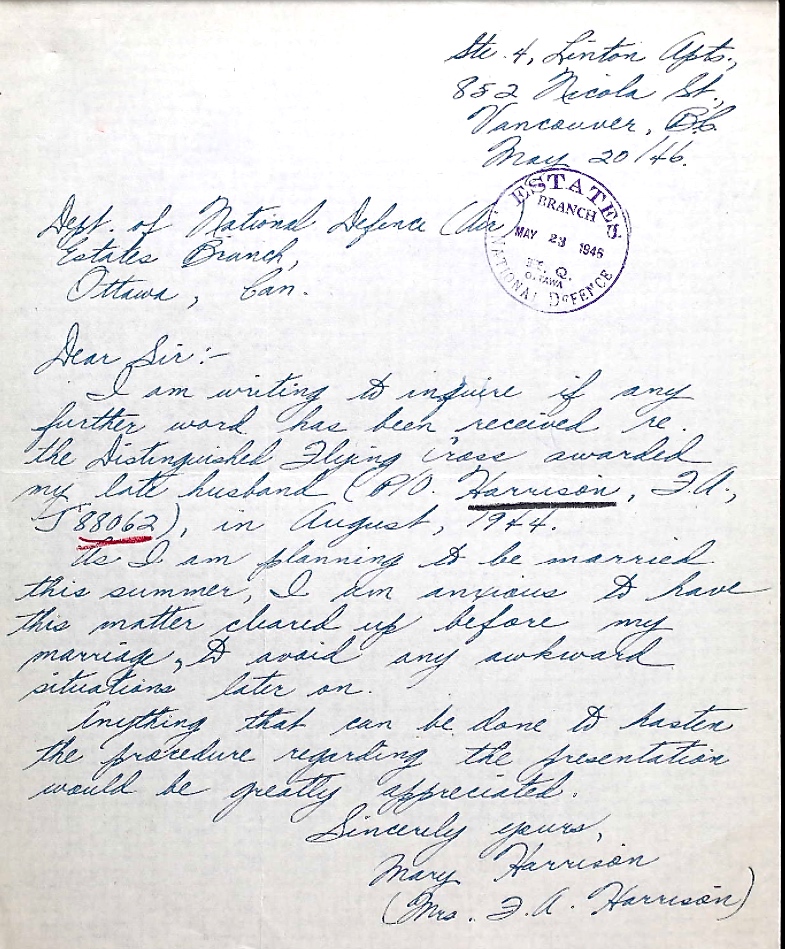 Ste. 4, Linton Apts.,
852 Nicola St.,
Vancouver, B.C.
May 20/46.
ESTATES
BRANCH
MAY 23 1946
H. Q.
OTTAWA
NATIONAL DEFENCE
Dept. of National Defence (Air)
Estates Branch,
Ottawa, Can.
Dear Sir:-
I am writing to inquire if any
further word has been received re.
the Distinguished Flying Cross awarded
my late husband (P/O. Harrison, F.A.,
J88062), in August, 1944.
As I am planning to be married
this summer, I am anxious to have
this matter cleared up before my
marriage, to avoid any awkward
situations later on.
Anything that can be done to hasten
the procedure regarding the presentation
would be greatly appreciated.
Sincerely yours,
Mary Harrison
(Mrs. F.A. Harrison)